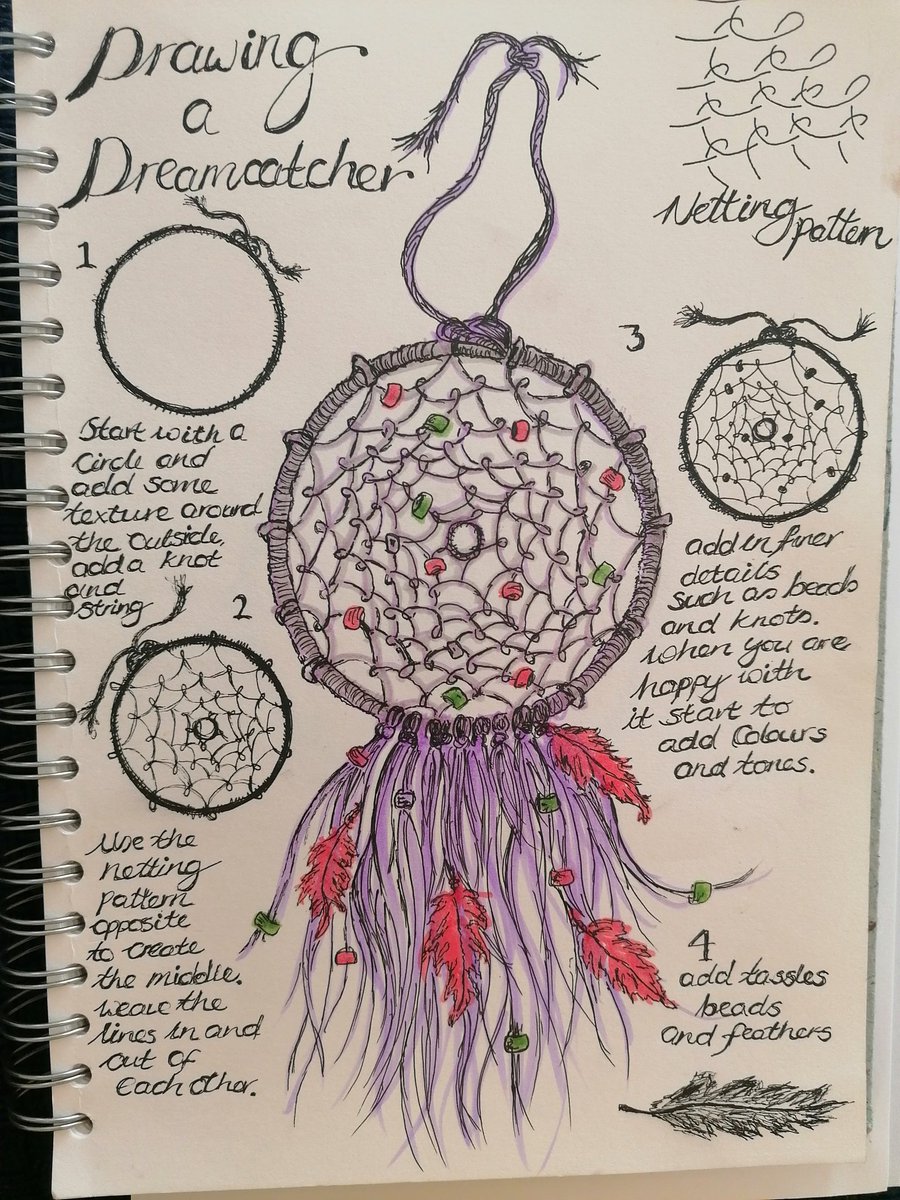 Drawing
a
Dreamcatcher
Netting
pattern
1
Start with a
Circle and
add some
texture around
the outside,
add a knot
and
string
2
Use the
netting
pattern
opposite
to create
the middle.
weave the
lines in and
out of
Each other.
3
add in finer
details
such as beads
and knots.
When you are
happy with
it start to
add Colours
and tones.
4
add tassles
beads
and feathers